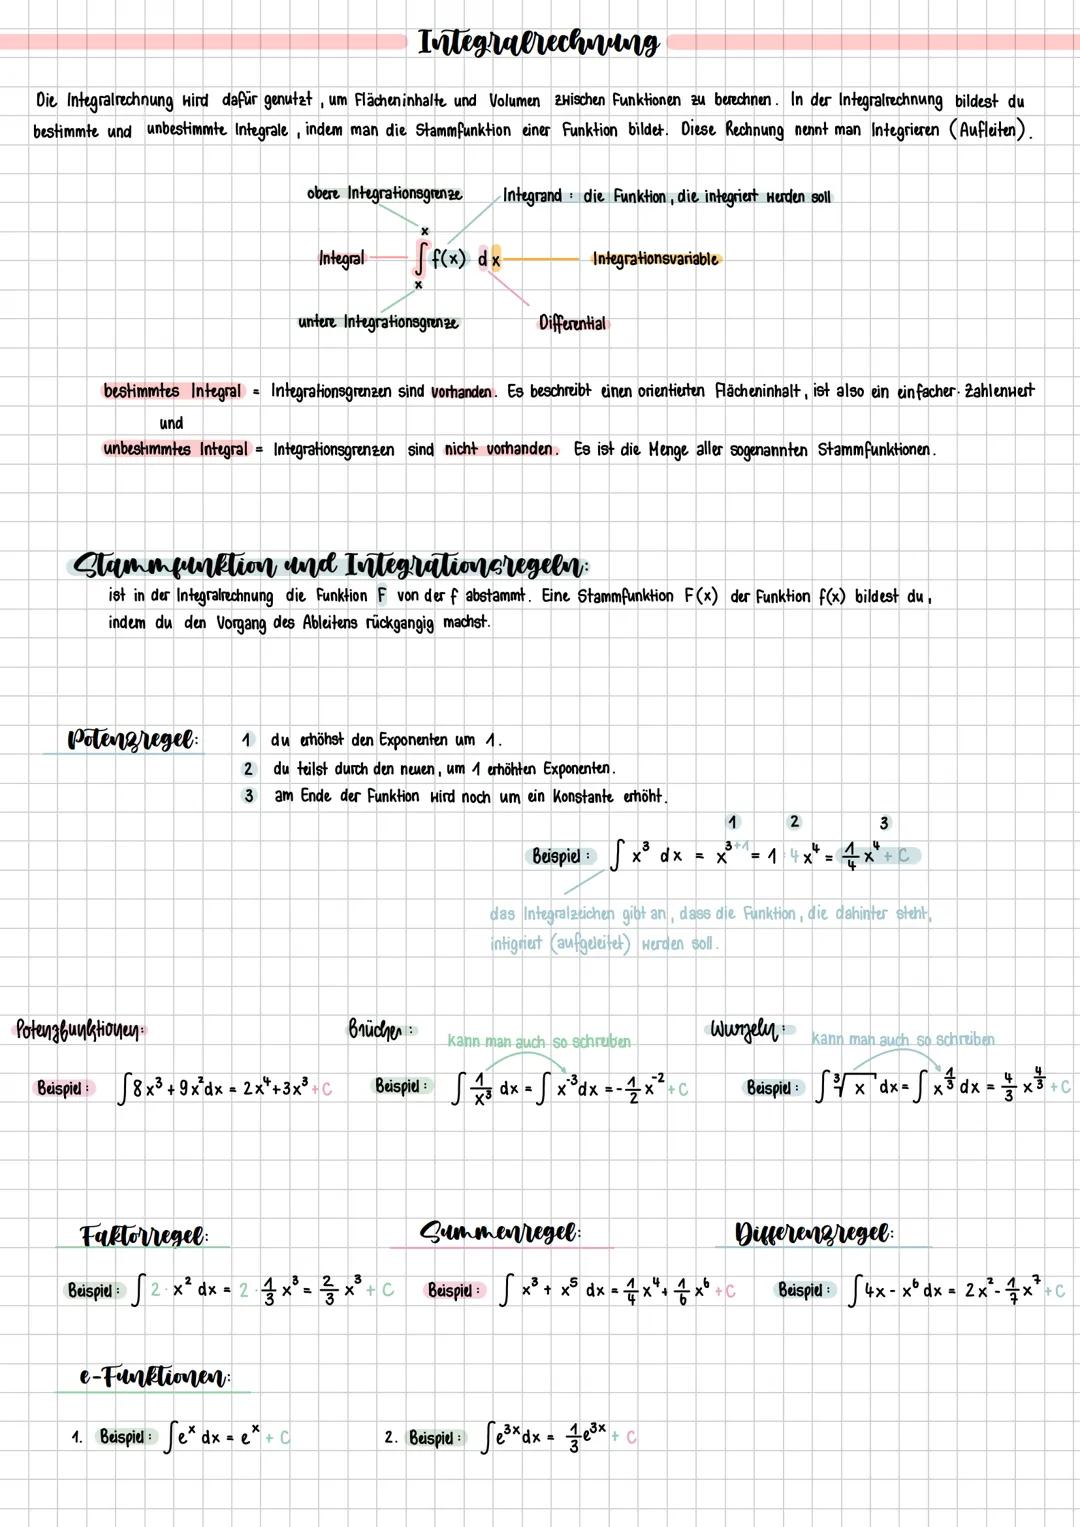 Integralrechnung
Die Integralrechnung wird dafür genutzt, um Flächeninhalte und Volumen zwischen Funktionen zu berechnen. In der Integralrechnung bildest du
bestimmte und unbestimmte Integrale, indem man die Stammfunktion einer Funktion bildet. Diese Rechnung nennt man Integrieren (Aufleiten).
obere Integrationsgrenze Integrand: die Funktion, die integriert werden soll
x
Integral ∫ f(x) dx Integrationsvariable
x
untere Integrationsgrenze Differential
bestimmtes Integral = Integrationsgrenzen sind vorhanden. Es beschreibt einen orientierten Flächeninhalt, ist also ein einfacher Zahlenwert
und
unbestimmtes Integral = Integrationsgrenzen sind nicht vorhanden. Es ist die Menge aller sogenannten Stammfunktionen.
Stammfunktion und Integrationsregeln:
ist in der Integralrechnung die Funktion F von der f abstammt. Eine Stammfunktion F(x) der Funktion f(x) bildest du,
indem du den Vorgang des Ableitens rückgangig machst.
Potenzregel: 1 du erhöhst den Exponenten um 1.
2 du teilst durch den neuen, um 1 erhöhten Exponenten.
3 am Ende der Funktion wird noch um ein Konstante erhöht.
1 2 3
Beispiel: ∫ x³ dx = x³⁺¹ = 1:4x⁴ = 1/4 x⁴ + C
das Integralzeichen gibt an, dass die Funktion, die dahinter steht,
intigriert (aufgeleitet) werden soll.
Potenzfunktionen: Brüche: Wurzeln:
kann man auch so schreiben kann man auch so schreiben
Beispiel: ∫8x³+9x²dx = 2x⁴+3x³+C Beispiel: ∫ 1/x³ dx = ∫ x⁻³dx = -1/2 x⁻²+C Beispiel: ∫ ³√x dx = ∫ x^1/3 dx = 4/3 x^4/3 + C
Faktorregel: Summenregel: Differenzregel:
Beispiel: ∫ 2·x² dx = 2·1/3 x³ = 2/3 x³ + C Beispiel: ∫ x³ + x⁵ dx = 1/4 x⁴ + 1/6 x⁶ + C Beispiel: ∫4x - x⁶ dx = 2x² - 1/7 x⁷ + C
e-Funktionen:
1. Beispiel: ∫eˣ dx = eˣ + C 2. Beispiel: ∫e³ˣdx = 1/3 e³ˣ + C